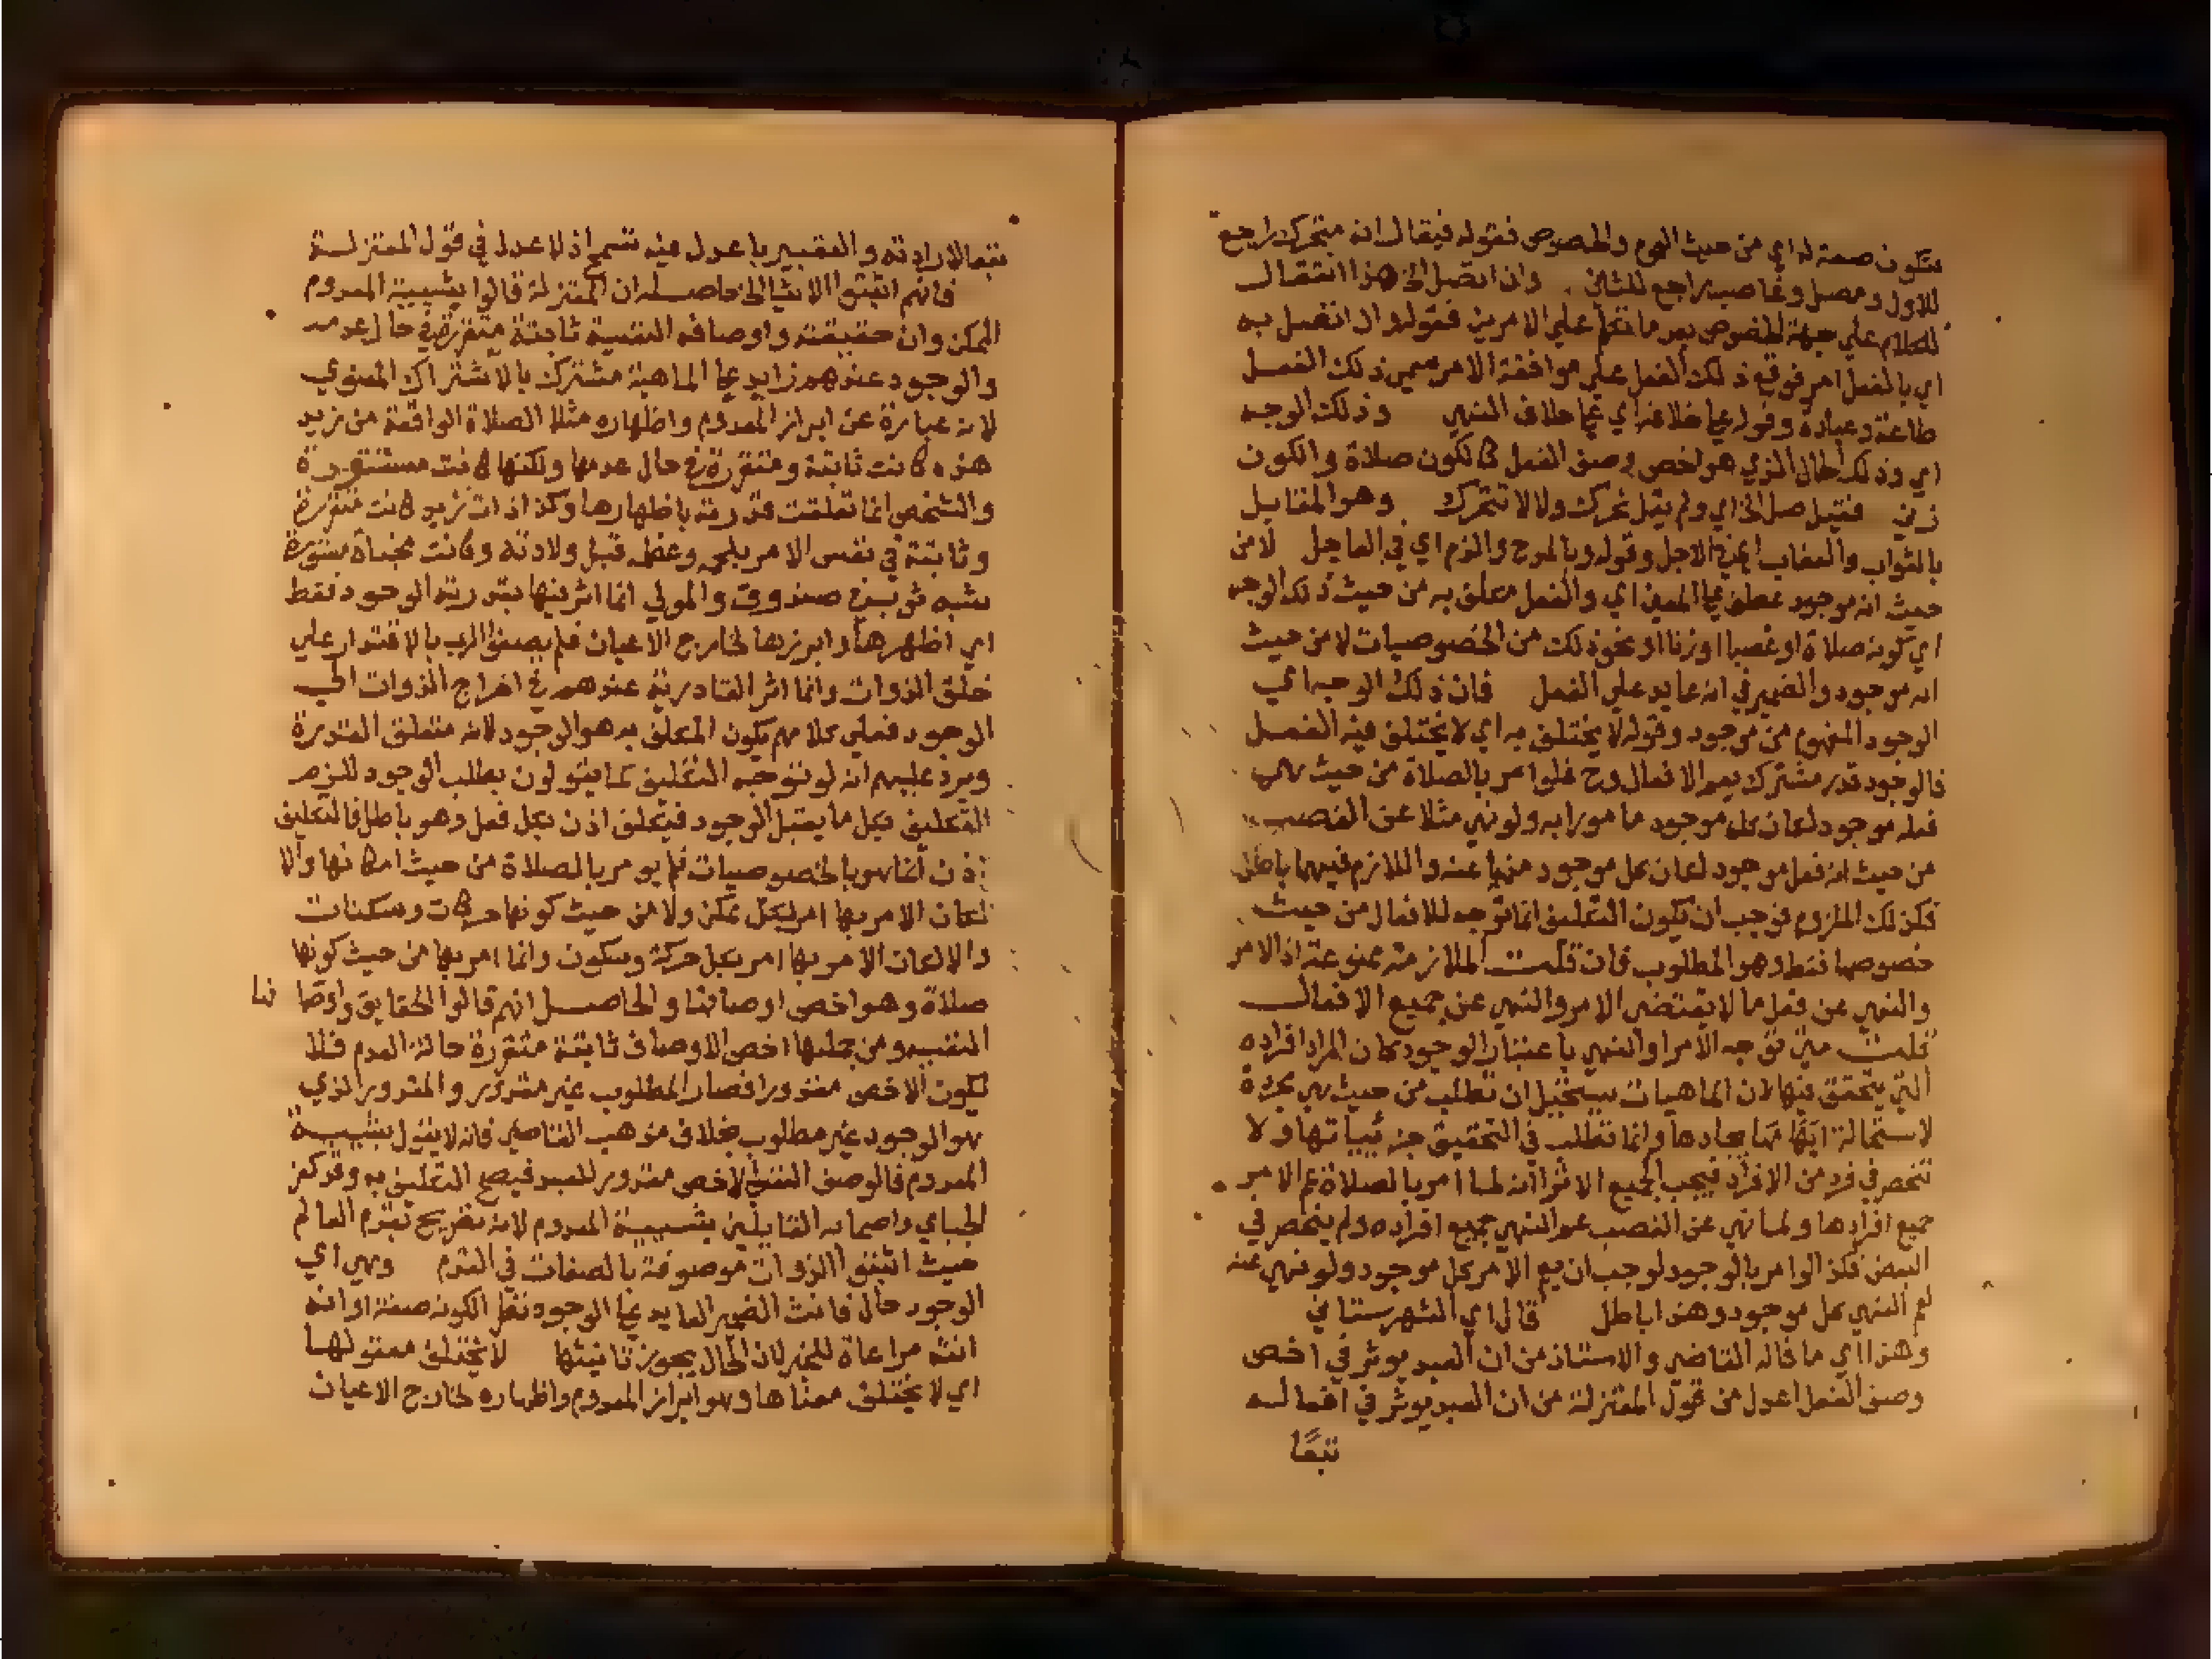 فتكون صفة له اي من حيث العموم والخصوص فقوله فيقال انه متحرك راجع
للاول ومصل وغاصب راجع للثاني وان اتصل الخ هذا انتقال
للكلام علي جهة الخصوص بعد ما تقدم علي الامرين فقوله وان اتصل به
اي بالفعل امر فوقع ذلك الفعل علي موافقة الامر سمي ذلك الفعل
طاعة وعبادة وقوله علي خلافه اي علي خلاف النهي وذلك الوجه
اي وذلك الحال الذي هو اخص وصف الفعل ككون صلاة والكون
زني فقيل صل الخ اي ولم يقل تحرك ولا لا تتحرك وهو المقابل
بالثواب والعقاب اي في الاجل وقوله وبالمدح والذم اي في العاجل لا من
حيث انه موجود عطف علي المعني اي والفعل متعلق به من حيث ذلك الوجه
اي كونه صلاة او غصبا او زنا او نحو ذلك من الخصوصيات لا من حيث
انه موجود والضمير في انه عايد علي الفعل فان ذلك الوجه اي
الوجود المفهوم من موجود وقوله لا يختلف به اي لا يختلف فيه الفعل
فالوجود قدر مشترك بين الافعال وح فلو امر بالصلاة من حيث هي
فعله موجود لكان كل موجود مامورا به ولو نهي مثلا عن الغصب
من حيث انه فعل موجود لكان كل موجود منهيا عنه واللازم فيهما باطل
فكذلك الملزوم فوجب ان يكون التكليف انما توجه للافعال من حيث
خصوصها فقط وهو المطلوب فان قلت الملازمة ممنوعة اذ الامر
والنهي عن فعل ما لا يقتضي الامر والنهي عن جميع الافعال
قلت متي توجه الامر او النهي باعتبار الوجود كان المراد افراده
التي يتحقق فيها لان الماهيات يستحيل ان تطلب من حيث هي مجردة
لاستحالة ايجادها وانما تطلب في التحقيق جزئياتها ولا
تنحصر في فرد من الافراد فيجب الجميع الا ترا انه لما امر بالصلاة عم الامر
جميع افرادها ولما نهي عن الغصب عم النهي جميع افراده ولم ينحصر في
البعض فكذا لو امر بالوجود لوجب ان يعم الامر كل موجود ولو نهي عنه
لعم النهي كل موجود وهذا باطل قال اي الشهرستاني
وهذا اي ما قاله القاضي والاستاذ من ان العبد يوثر في اخص
وصف الفعل اعدل من قول المعتزلة من ان العبد يوثر في افعاله
تبعًا
تبعا لارادته والتعبير باعدل فيه تسمح اذ لا عدل في قول المعتزلة
فانهم اثبتوا الاشيا الخ حاصله ان المعتزلة قالوا بشيئية المعدوم
الممكن وان حقيقته واوصافه النفسية ثابتة متقررة في حال عدمه
والوجود عندهم زايد علي الماهية مشترك بالاشتراك المعنوي
لانه عبارة عن ابراز المعدوم واظهاره مثلا الصلاة الواقعة من زيد
هذه كانت ثابتة ومتقررة في حال عدمها ولكنها كانت مستورة
والشخص انما تعلقت قدرته باظهارها وكذا ذات زيد كانت متقررة
وثابتة في نفس الامر بلحمه وعظمه قبل ولادته وكانت مخباة مستورة
بشبه ثوب في صندوق والمولي انما اثر فيها بقدرته الوجود فقط
اي اظهرها وابرزها لخارج الاعيان فلم يصف الرب بالاقتدار علي
خلق الذوات وانما اثر القادرية عندهم في اخراج الذوات الي
الوجود فعلي كلامهم يكون المكلف به هو الوجود لانه متعلق القدرة
ويرد عليهم انه لو توجه التكليف كما يقولون بطلب الوجود للزم
التكليف بكل ما يقبل الوجود فيتكلف اذن بكل فعل وهو باطل فالتكليف
اذن انما هو بالخصوصيات فلم يومر بالصلاة من حيث امكانها والا
لكان الامر بها امر بكل ممكن ولا من حيث كونها حركات وسكنات
والا لكان الامر بها امر بكل حركة وسكون وانما امر بها من حيث كونها
صلاة وهو اخص اوصافها والحاصل انهم قالوا الحقايق واوصا فها
النفسية ومن جملتها اخص الاوصاف ثابتة متقررة حالة العدم فلا
يكون الاخص مقدورا فصار المطلوب غير مقدور والمقدور الذي
هو الوجود غير مطلوب بخلاف مذهب القاضي فانه لا يقول بشيئية
المعدوم فالوصف النفسي الاخص مقدور للعبد فيصح التكليف به وقد كفر
الجباي واصحابه القايلين بشيئية المعدوم لانه تصريح بقدم العالم
حيث اثبتوا الذوات موصوفة بالصفات في القدم وهي اي
الوجود حال فانث الضمير العايد علي الوجود نظرا لكونه صفة او انه
انثه مراعاة للخبر لان الحال يجوز تانيثها لا يختلف معقولها
اي لا يختلف معناها وهو ابراز المعدوم واظهاره لخارج الاعيان